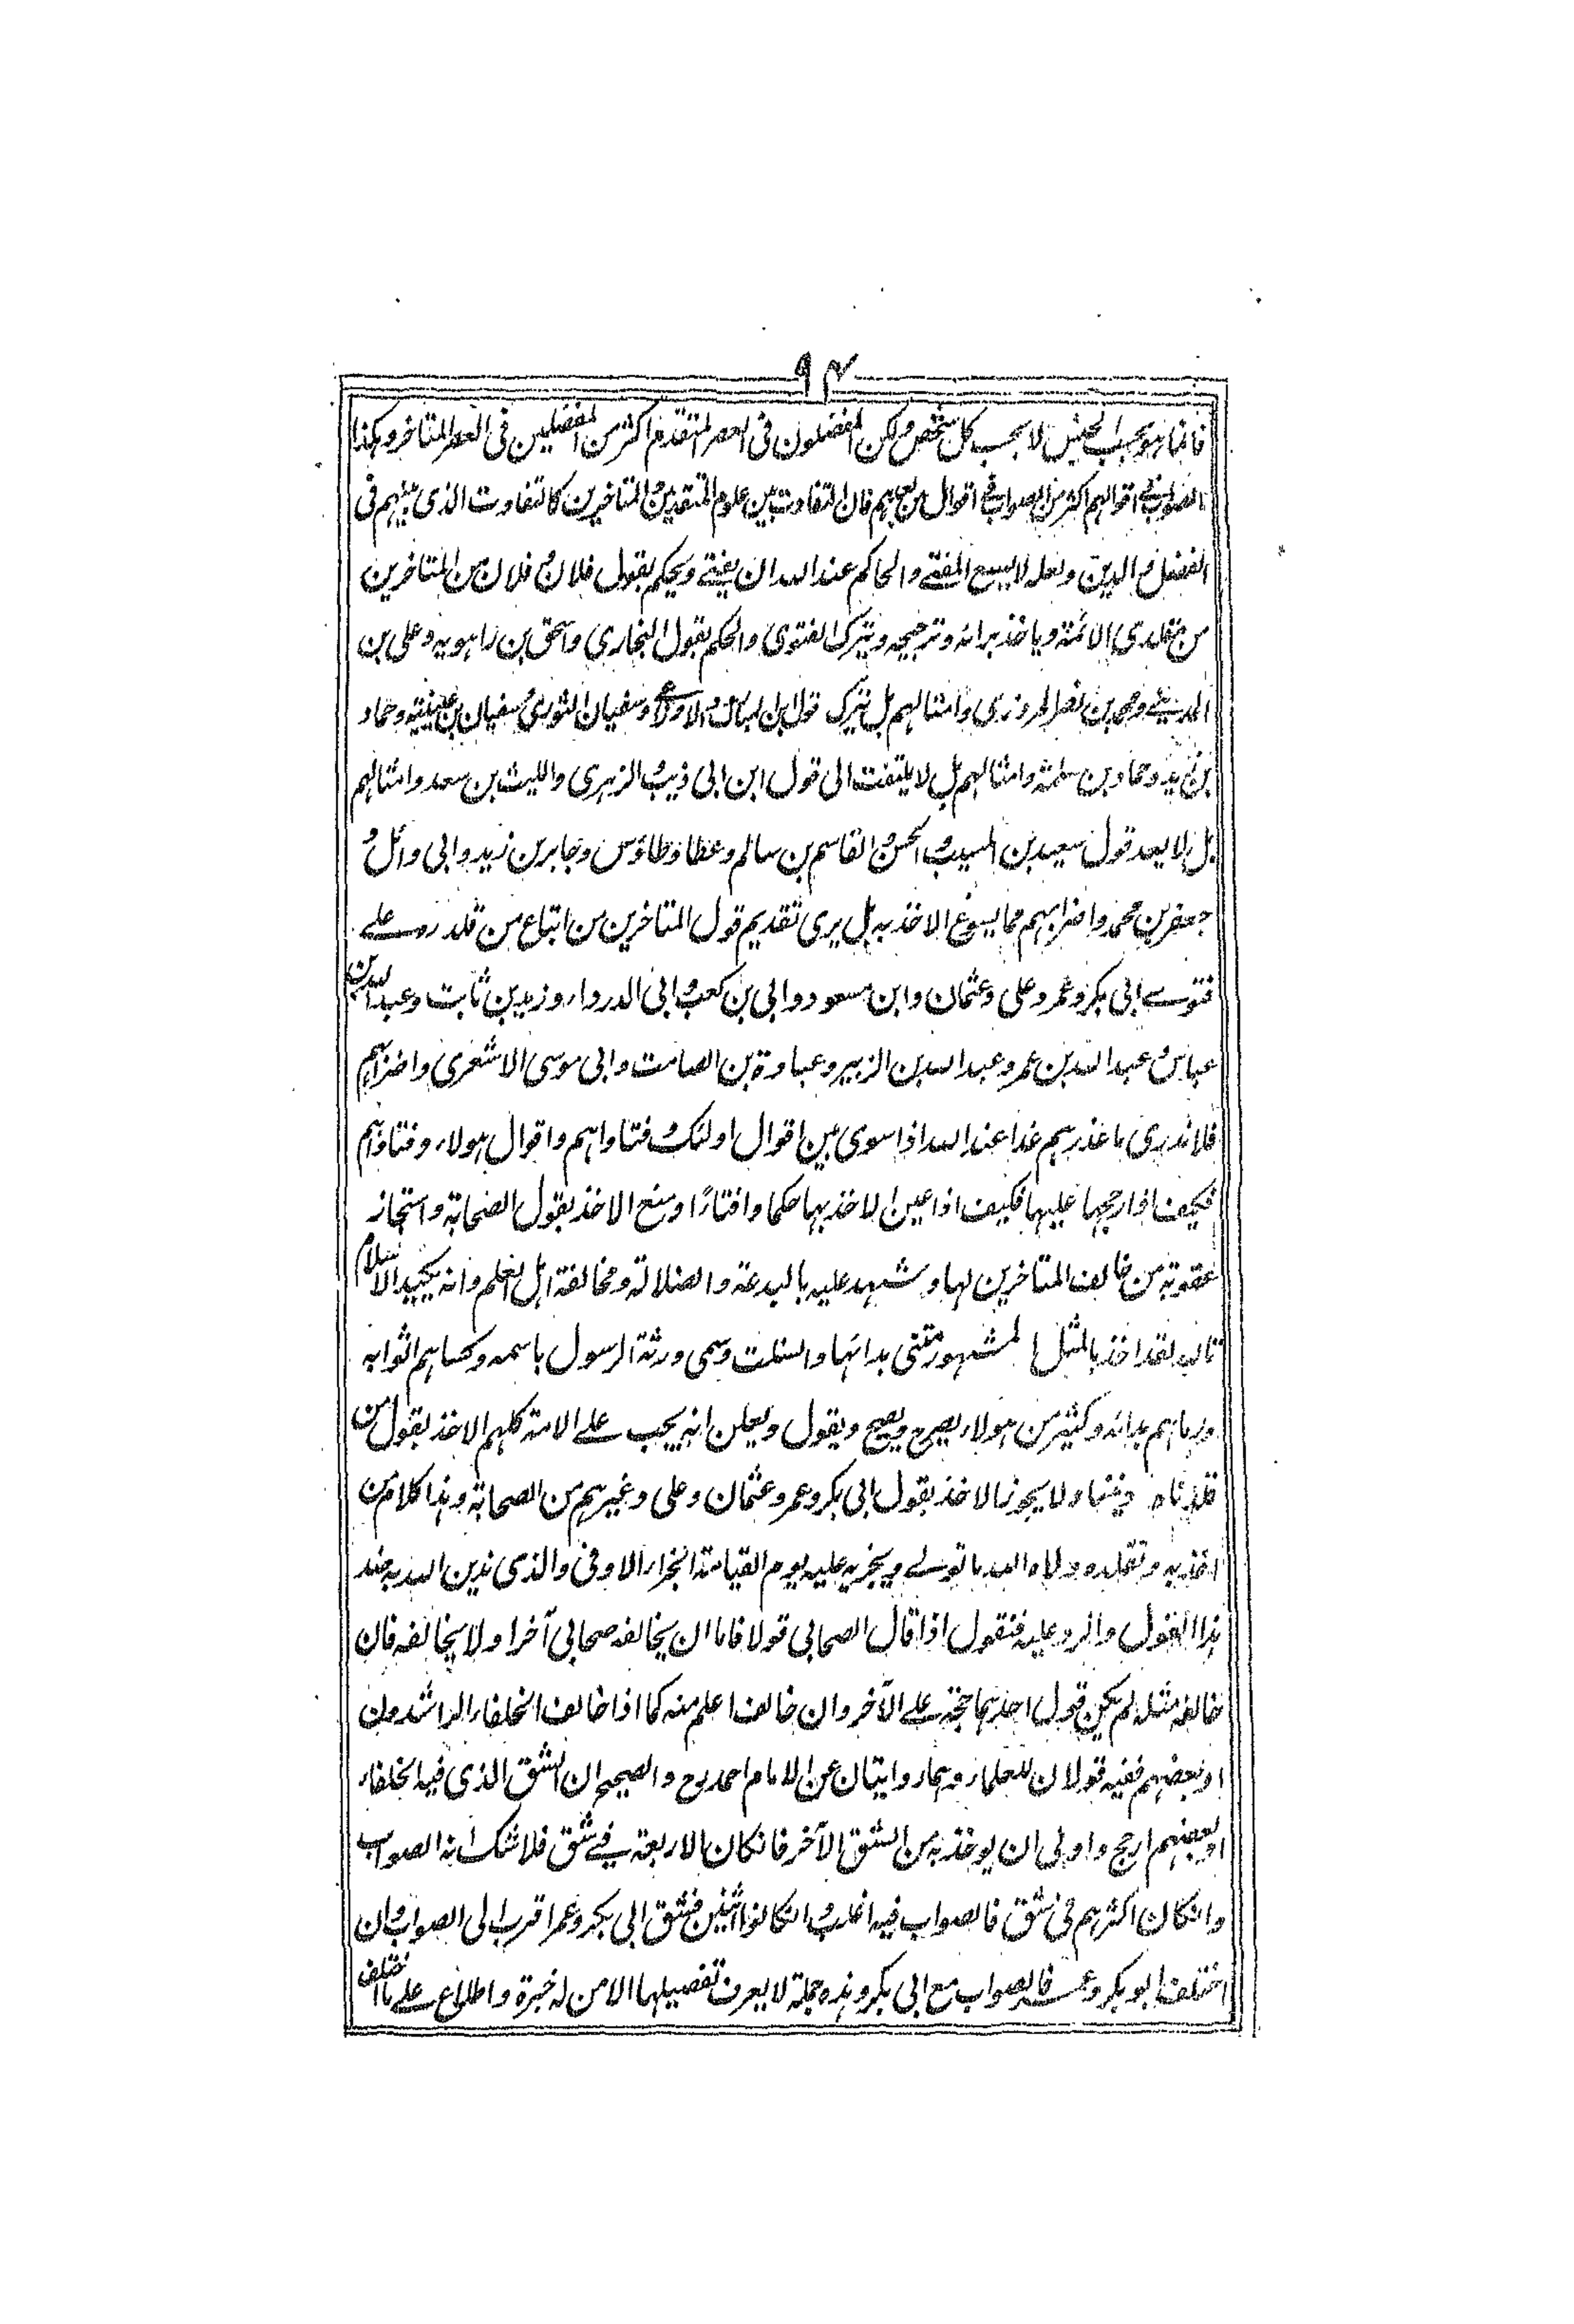 ٩٤
فانما هو بحسب الجنس لا بحسب كل شخص ولكن المفضلون فى العصر المتقدم اكثر من المفضلين فى العصر المتاخر وهكذا
الصواب فے اقوالهم اكثر من الصواب فے اقوال من بعدهم فان التفاوت بين علوم المتقدمين والمتاخرين كالتفاوت الذى بينهم فى
الفضل والدين ولعله لا يسع المفتے والحاكم عند الله ان يفتے ويحكم بقول فلان وفلان من المتاخرين
من مقلدى الائمة وياخذ برائه وترجيحه ويترك الفتوى والحكم بقول البخارى واسحق بن راهويه وعلى بن
المدينے ومحمد بن نصر المروزى وامثالهم بل يترك قول ابن المبارك والاوزاعى وسفيان الثورى وسفيان بن عيينة وحماد
بن زيد وحماد بن سلمة وامثالهم بل لا يلتفت الى قول ابن ابى ذيب والزهرى والليث بن سعد وامثالهم
بل لا يعد قول سعيد بن المسيب والحسن والقاسم بن سالم وعطا وطاؤس وجابر بن زيد وابى وائل و
جعفر بن محمد واضرابهم مما يسوغ الاخذ به بل يرى تقديم قول المتاخرين من اتباع من قلده علے
فتوے ابى بكر وعمر وعلى وعثمان وابن مسعود وابى بن كعب وابى الدرداء وزيد بن ثابت وعبد الله بن
عباس وعبد الله بن عمر وعبد الله بن الزبير وعبادة بن الصامت وابى موسى الاشعرى واضرابهم
فلا ندرى ما عذرهم غدا عند الله اذا سوى بين اقوال اولئك وفتاواهم واقوال هولاء وفتاواهم
فكيف اذا رجحها عليها فكيف اذا عين الاخذ بها حكما وافتاءً او منع الاخذ بقول الصحابة واستجاز
عقوبة من خالف المتاخرين لها وشهد عليه بالبدعة والضلالة ومخالفة اهل العلم وانه يكيد الاسلام
تالله لقد اخذ بالمثل المشهور رمتنى بدائها وانسلت وسمى ورثة الرسول باسمه وكساهم اثوابه
ورماهم بدائه وكثير من هولاء يصرح ويصيح ويقول ويعلن انه يجب علے الامة كلهم الاخذ بقول من
قلدناه ديننا ولا يجوز الاخذ بقول ابى بكر وعمر وعثمان وعلى وغيرهم من الصحابة وهذا كلام من
اخذ به وتقلده ولاه الله ما تولے ويجزيه عليه يوم القيامة الجزاء الاوفى والذى ندين الله به ضد
هذا القول والرد عليه فنقول اذا قال الصحابى قولا فاما ان يخالفه صحابى آخر او لا يخالفه فان
خالفه مثله لم يكن قول احدهما حجة علے الآخر وان خالف اعلم منه كما اذا خالف الخلفاء الراشدون
او بعضهم ففيه قولان للعلماء وهما روايتان عن الامام احمد رح والصحيح ان الشق الذى فيه الخلفاء
او بعضهم ارجح واولى ان يوخذ به من الشق الآخر فانكان الاربعة فے شق فلا شك انه الصواب
وانكان اكثرهم فى شق فالصواب فيه اغلب وانكانوا اثنين فشق ابى بكر وعمر اقرب الى الصواب وان
اختلف ابو بكر وعمر فالصواب مع ابى بكر وهذه جملة لا يعرف تفصيلها الا من له خبرة واطلاع علے ما اختلف